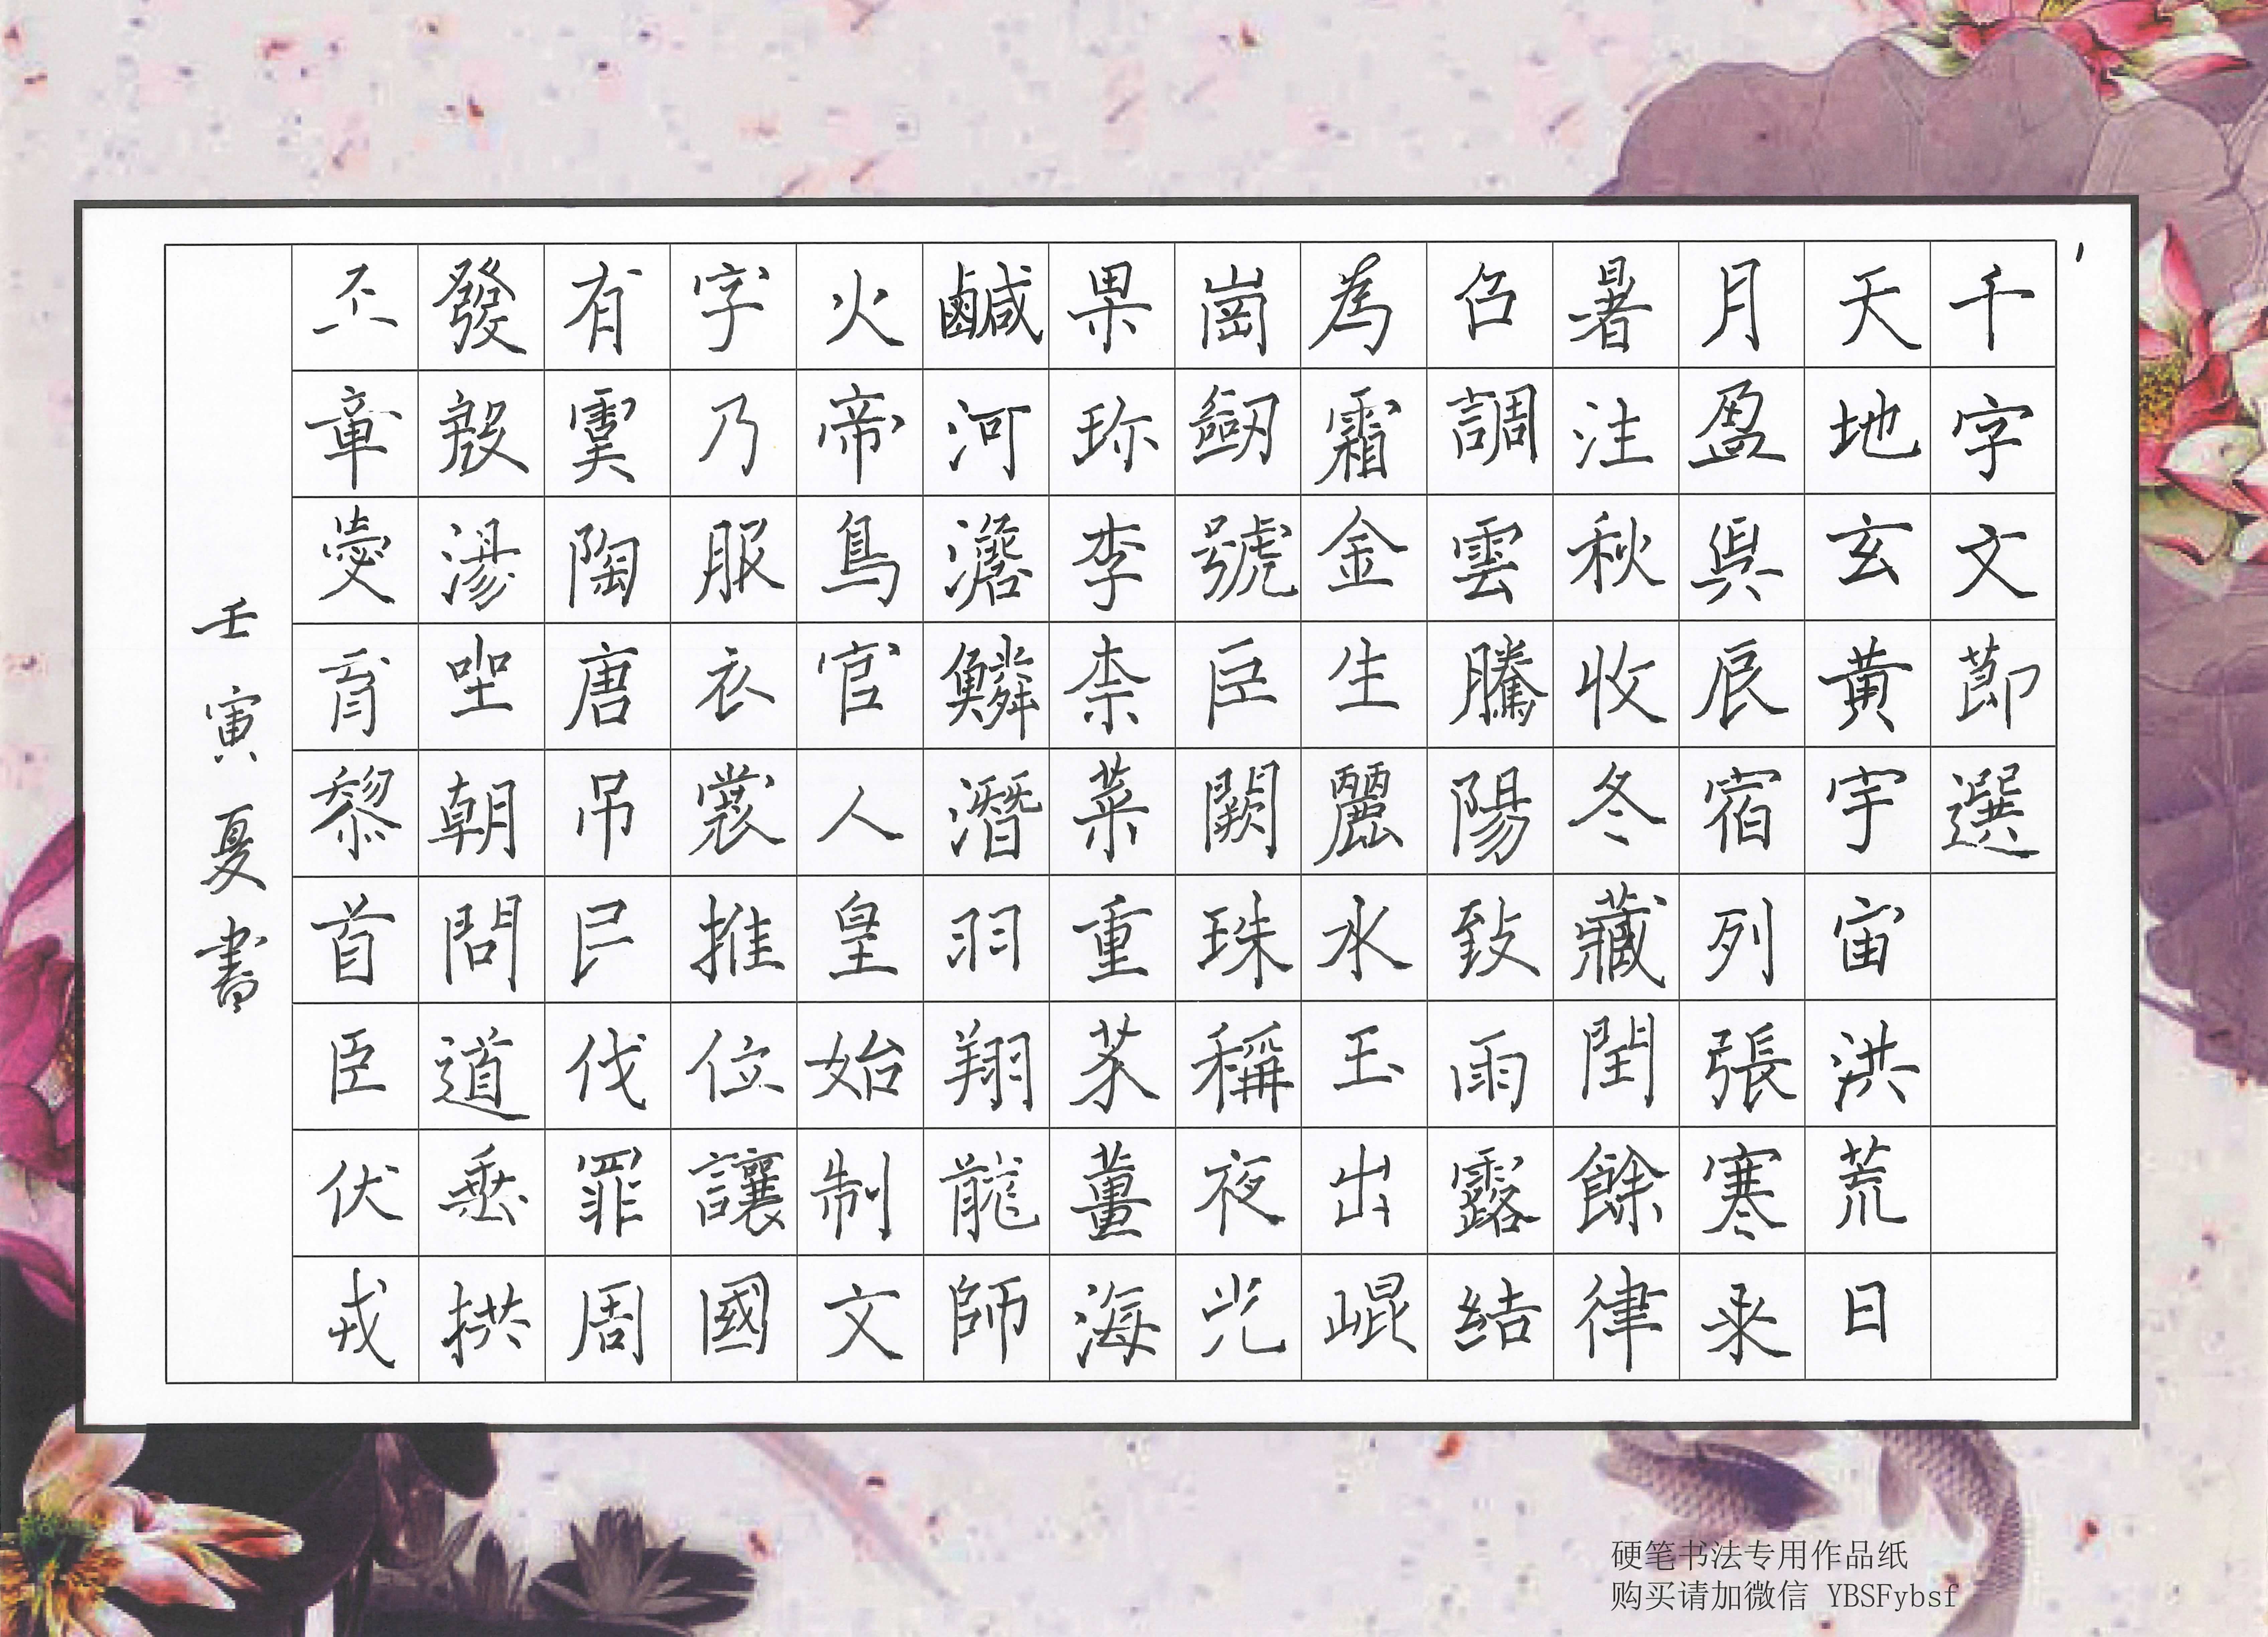 千字文節選
天地玄黃宇宙洪荒日
月盈昃辰宿列張寒来
暑往秋收冬藏閏餘律
召調雲騰陽致雨露結
為霜金生麗水玉出崐
崗劒號巨闕珠稱夜光
果珎李柰菜重芥薑海
鹹河澹鱗潛羽翔龍師
火帝鳥官人皇始制文
字乃服衣裳推位讓國
有虞陶唐吊民伐罪周
發殷湯坐朝問道垂拱
丕章愛育黎首臣伏戎
壬寅夏書
硬笔书法专用作品纸
购买请加微信 YBSFybsf